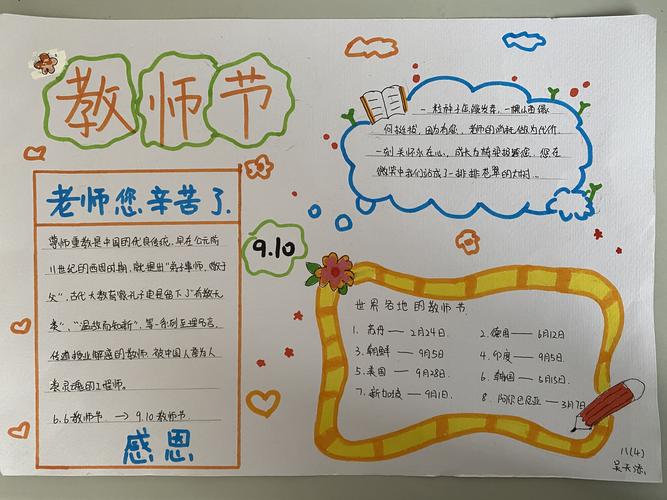 教师节
老师您辛苦了.
尊师重教是中国的优良传统,早在公元前
11世纪的西周时期,就提出"弟子事师,敬于
父",古代大教育家孔子更是留下了"有教无
类","温故而知新",等一系列至理名言,
传道授业解惑的教师,被中国人誉为人
类灵魂的工程师。
6.6教师节 → 9.10教师节
感恩
9.10
一粒种子在温发芽,一棵小苗很
何挺拔,因为有您,老师的消耗做为代价,
一刻关怀永在心,成长为桥梁报答您,您在
微笑中我们站成了一排排苍翠的大树...
世界各地的教师节
1. 苏丹——2月24日.
2. 德国——6月12日
3. 朝鲜——9月5日
4. 印度——9月5日.
5. 美国——9月28日.
6. 韩国——5月15日.
7. 新加坡——9月1日.
8. 阿尔巴尼亚——3月7日
八(4)
吴天添